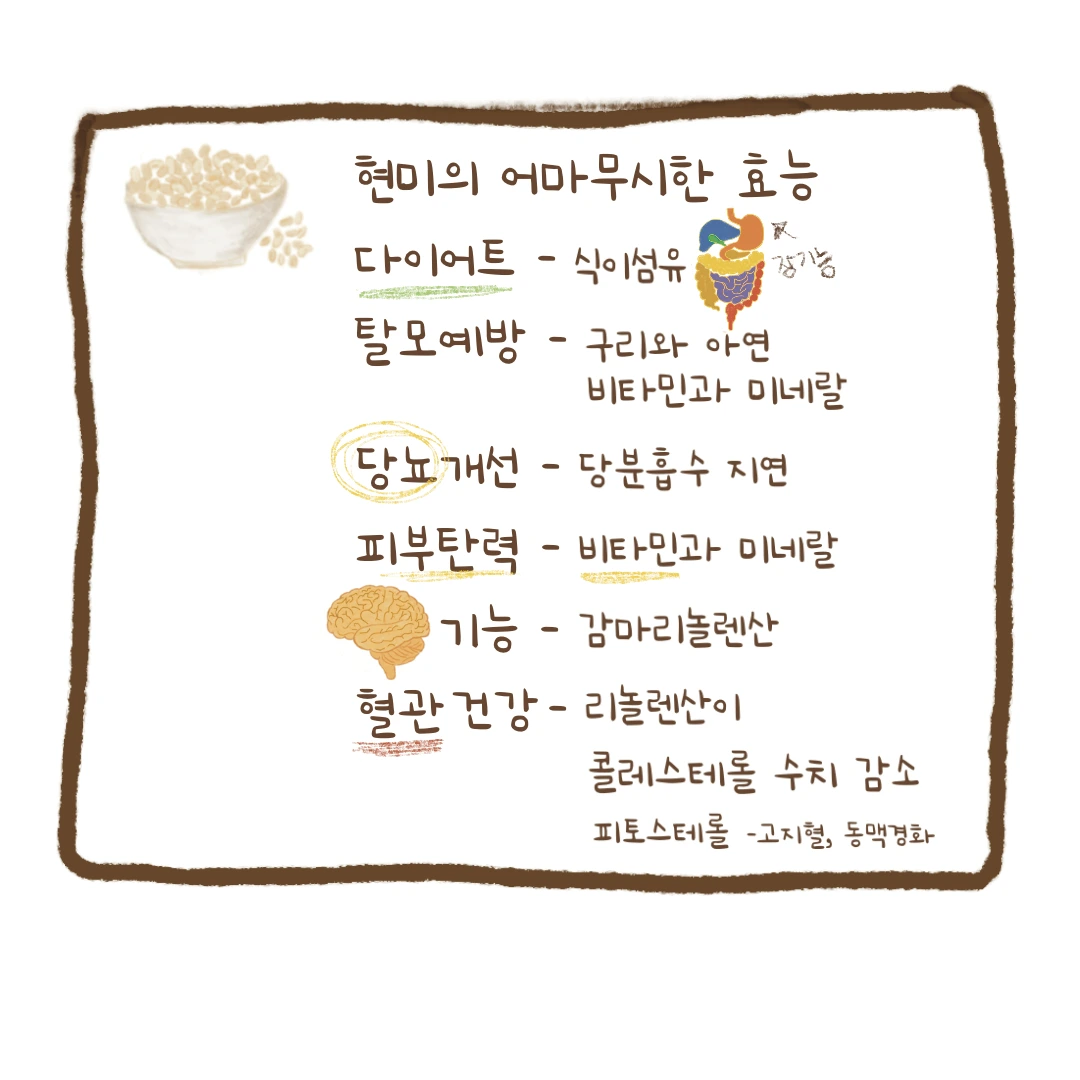 현미의 어마무시한 효능
다이어트 - 식이섬유
장기능
탈모예방 - 구리와 아연
비타민과 미네랄
당뇨개선 - 당분흡수 지연
피부탄력 - 비타민과 미네랄
기능 - 감마리놀렌산
혈관건강 - 리놀렌산이
콜레스테롤 수치 감소
피토스테롤 -고지혈, 동맥경화